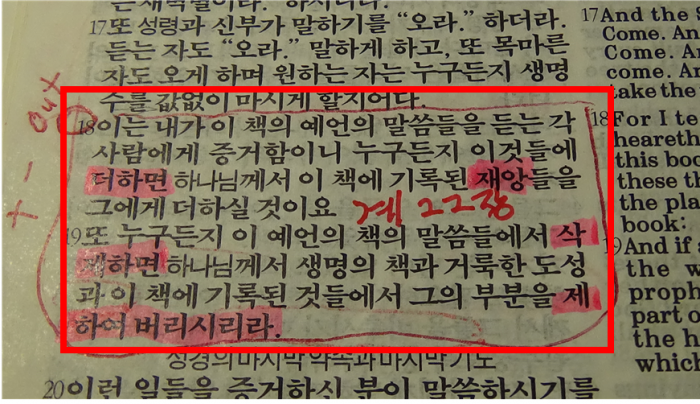 17또 성령과 신부가 말하기를 “오라.” 하더라.
듣는 자도 “오라.” 말하게 하고, 또 목마른
자도 오게 하며 원하는 자는 누구든지 생명
수를 값없이 마시게 할지어다.
18이는 내가 이 책의 예언의 말씀들을 듣는 각
사람에게 증거함이니 누구든지 이것들에
더하면 하나님께서 이 책에 기록된 재앙들을
그에게 더하실 것이요 계 22장
19또 누구든지 이 예언의 책의 말씀들에서 삭
제하면 하나님께서 생명의 책과 거룩한 도성
과 이 책에 기록된 것들에서 그의 부분을 제
하여 버리시리라.
성경의 마지막 약속과 마지막 기도
20이런 일들을 증거하신 분이 말씀하시기를
out
17And the
Come. An
Come. A
come. A
take the
18For I te
heareth
this boo
these th
the pla
book:
19And if
the w
proph
part o
the h
which